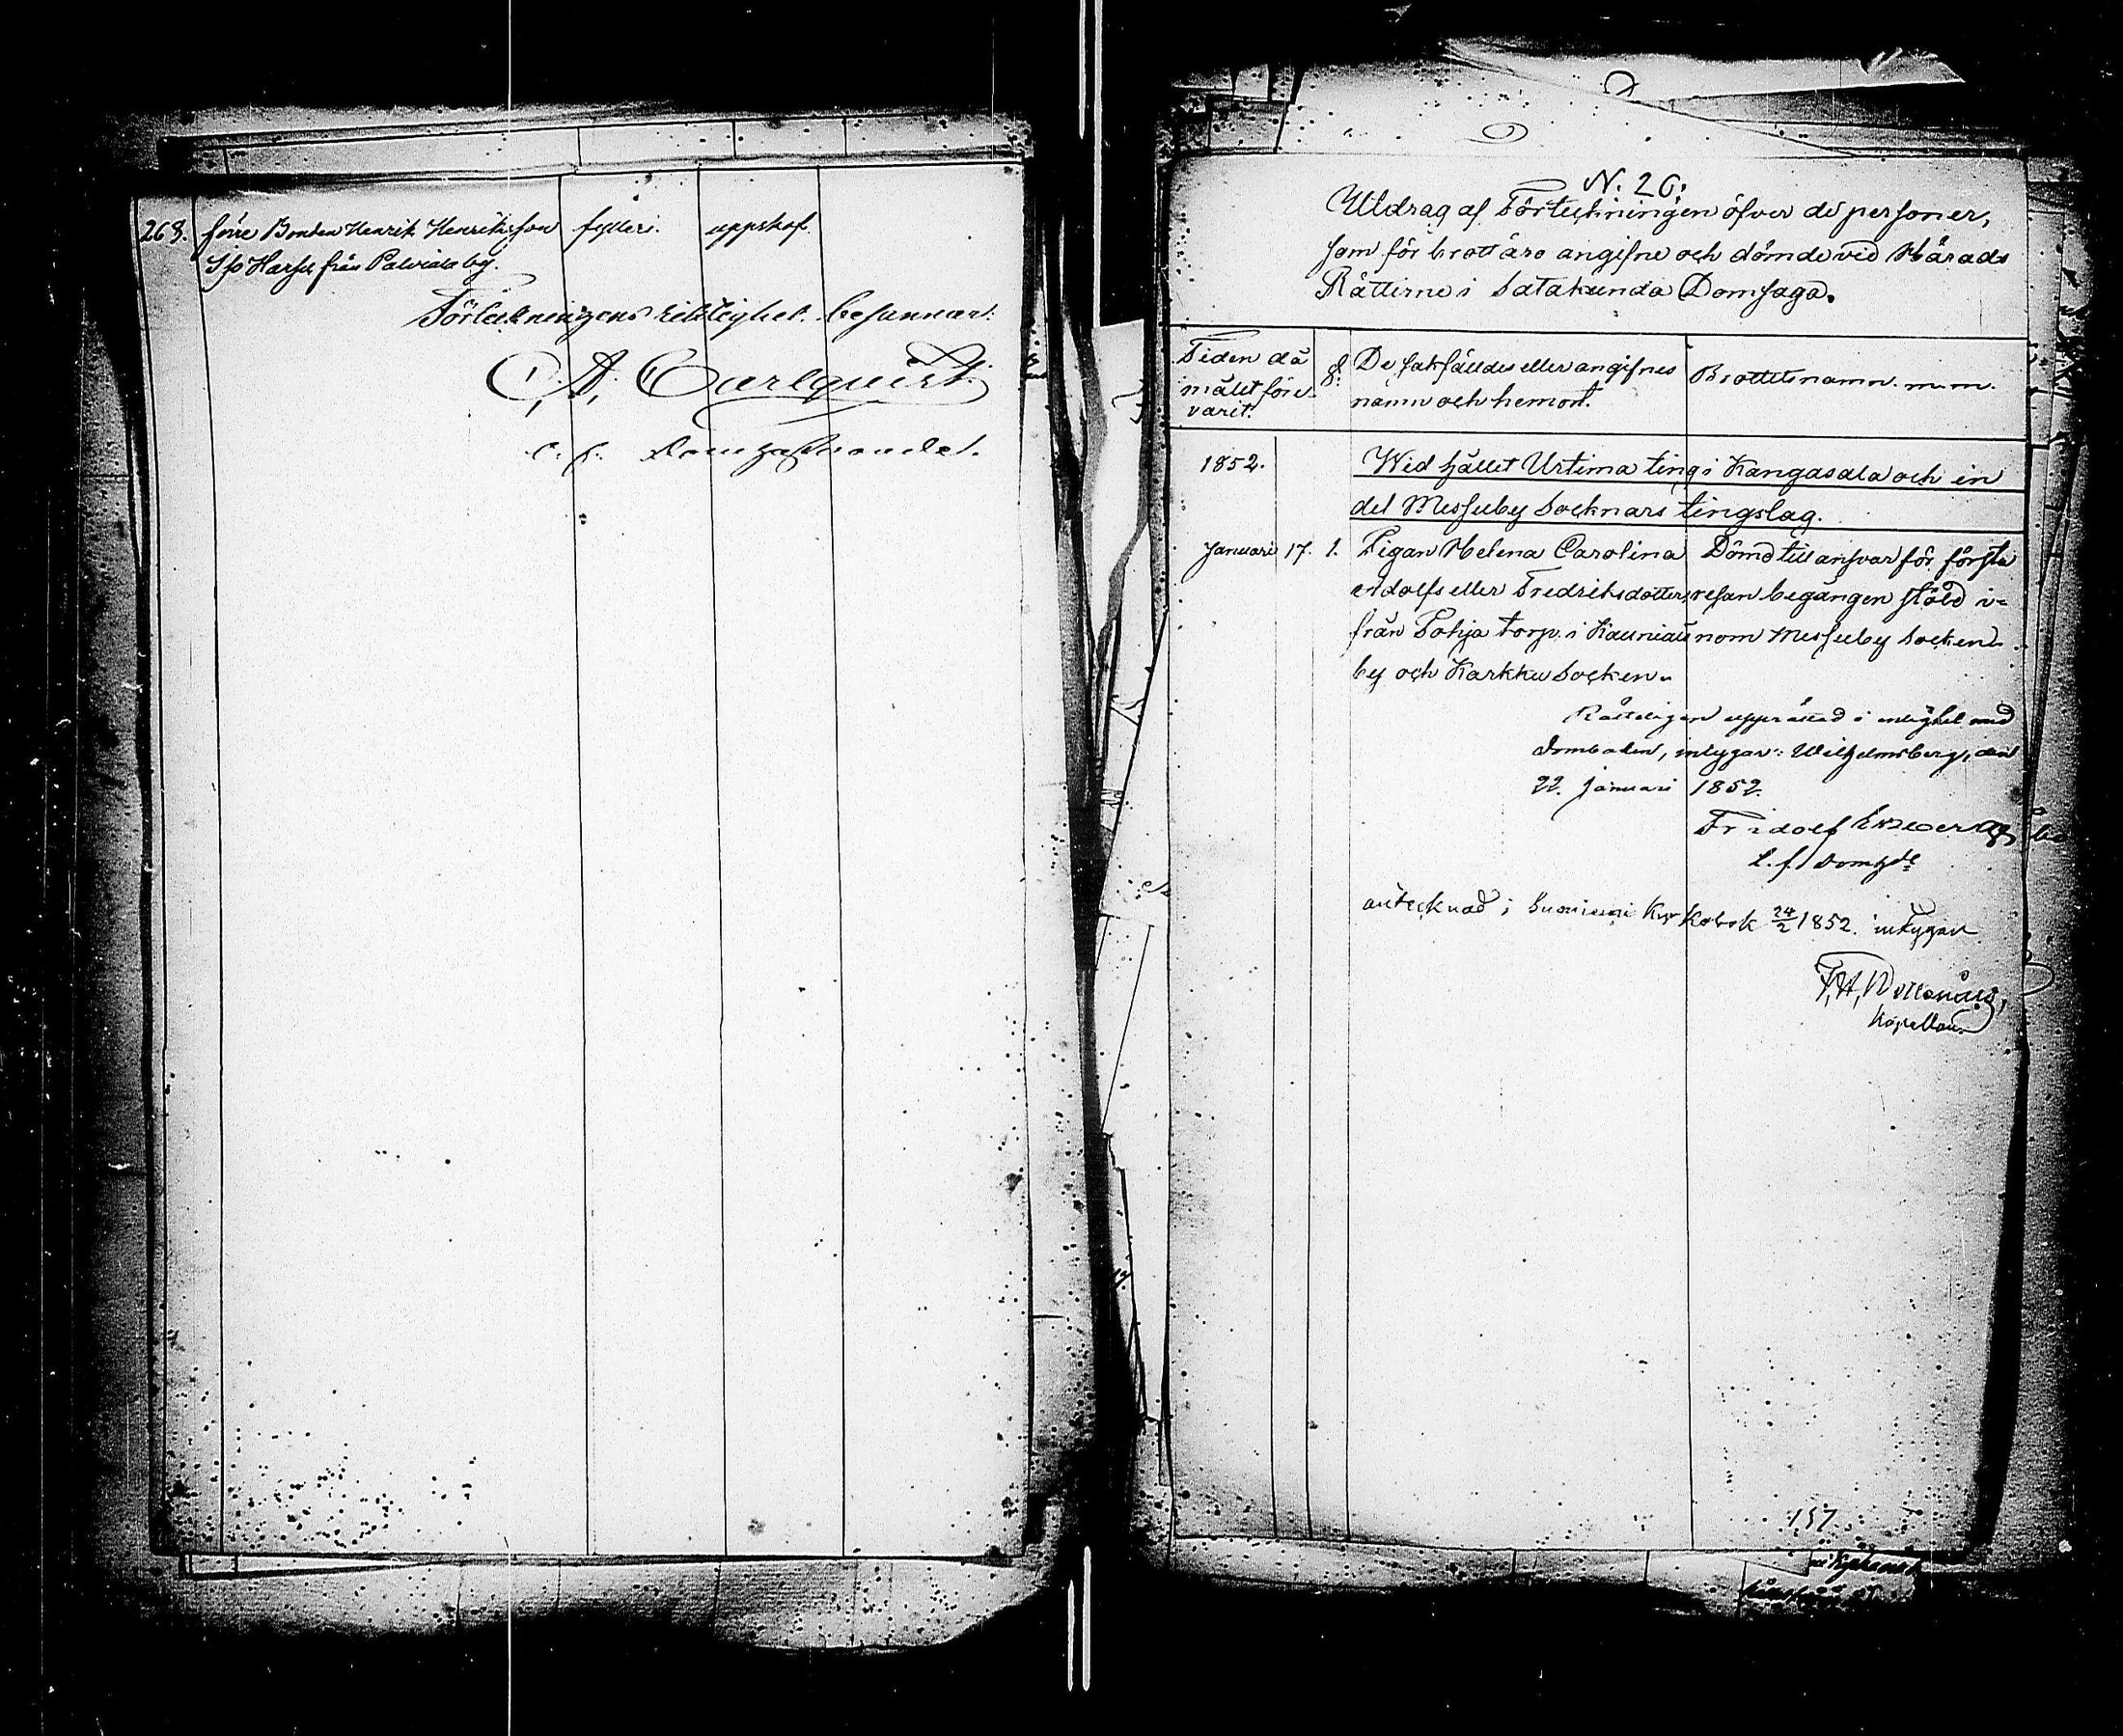 268. förre Bonden Henrik Henriksson fylleri. uppskof.
från Palviala by.
Förteckningens riktighet besannar:
C. A. Carlqvist.
e. f. Domhafvande.
N. 26.
Utdrag af Förteckningen öfver de personer,
som för brott äro angifne och dömde vid Härads
Rätterne i Satakunda Domsaga.
Tiden då målet förevarit. §. De sakfälldes eller angifnes namn och hemort. Brottets namn m. m.
1852. Wid hållet Urtima ting i Kangasala och en
del Messuby Socknars tingslag.
Januari 17. 1. Pigan Helena Carolina Dömd till ansvar för första
Adolfs eller Fredriksdotter, resan begången stöld i-
från Pohja torp i Kauniais nom Messuby Socken.
by och Karkku Socken.
Rätteligen upprättad i enlighet med
domboken, intygar: Wilhelmsberg, den
22. Januari 1852.
Fridolf
e. f. Domhde
antecknad i Suoniemi Kyrkobok 24/2 1852. intygar
F. H.
Kapellan.
157